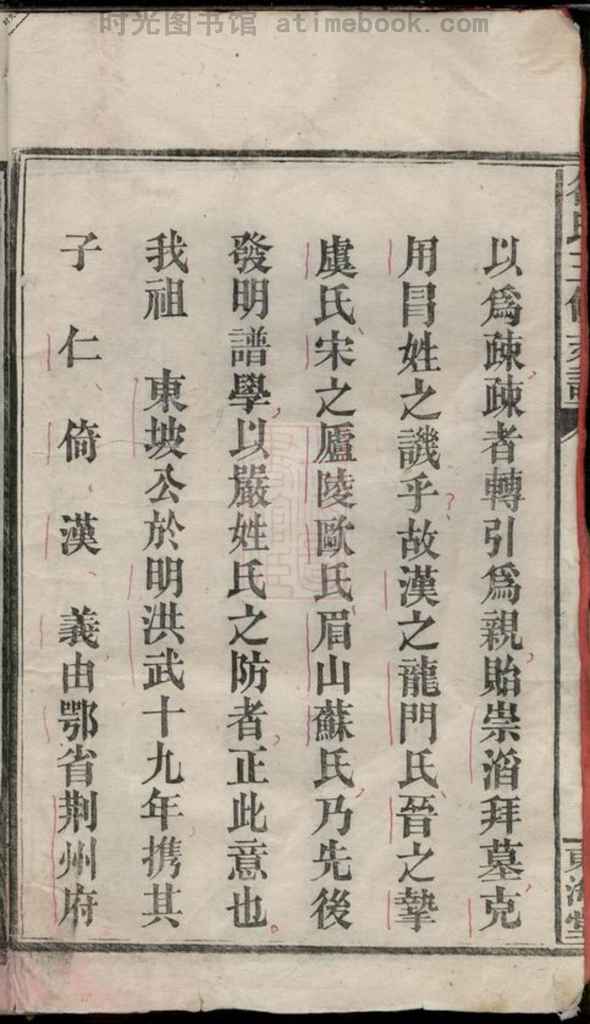 时光图书馆 atimebook.com
以爲疎疎者轉引爲親貽崇滔拜墓克
用冐姓之譏乎故漢之龍門氏晉之摯
虞氏宋之廬陵歐氏眉山蘇氏乃先後
發明譜學以嚴姓氏之防者正此意也
我祖 東坡公於明洪武十九年携其
子 仁 倚 漢 義由鄂省荆州府